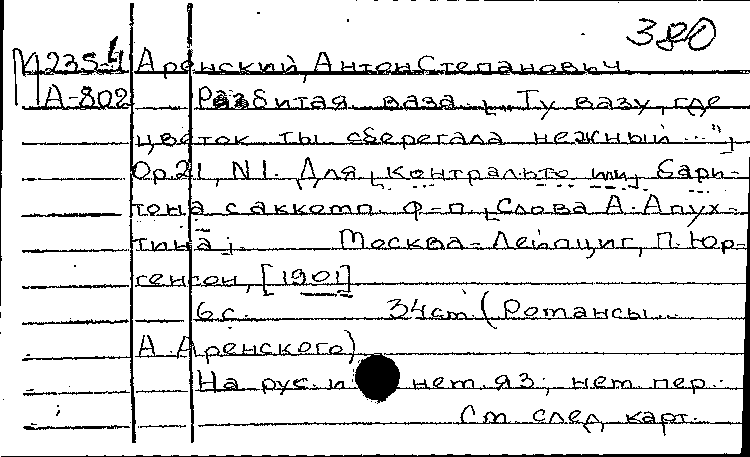 380
М235-4 Аренский, Антон Степанович.
А-802 Разбитая ваза. [„Ту вазу, где
цветок ты сберегала нежный..."]
Ор.21, N1. Для [контральто или] бари-
тона с аккомп. ф-п. [Слова А. Апух-
тина]. Москва-Лейпциг, П. Юр-
генсон, [1901]
6 с. 34 cm. (Романсы..
А. Аренского)
На рус. и нем. яз; нем. пер.
См. след. карт.